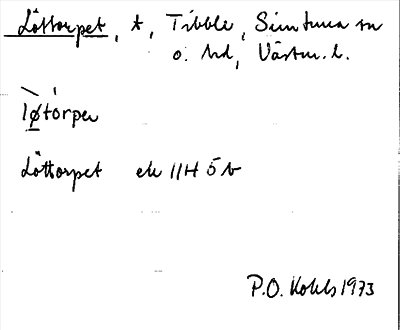 Löttorpet, t, Tibble, Simtuna sn
o. hd, Västm. l.
lø̀tórpeṛ
Löttorpet ek 11H 5b
P.O. Kohls 1973